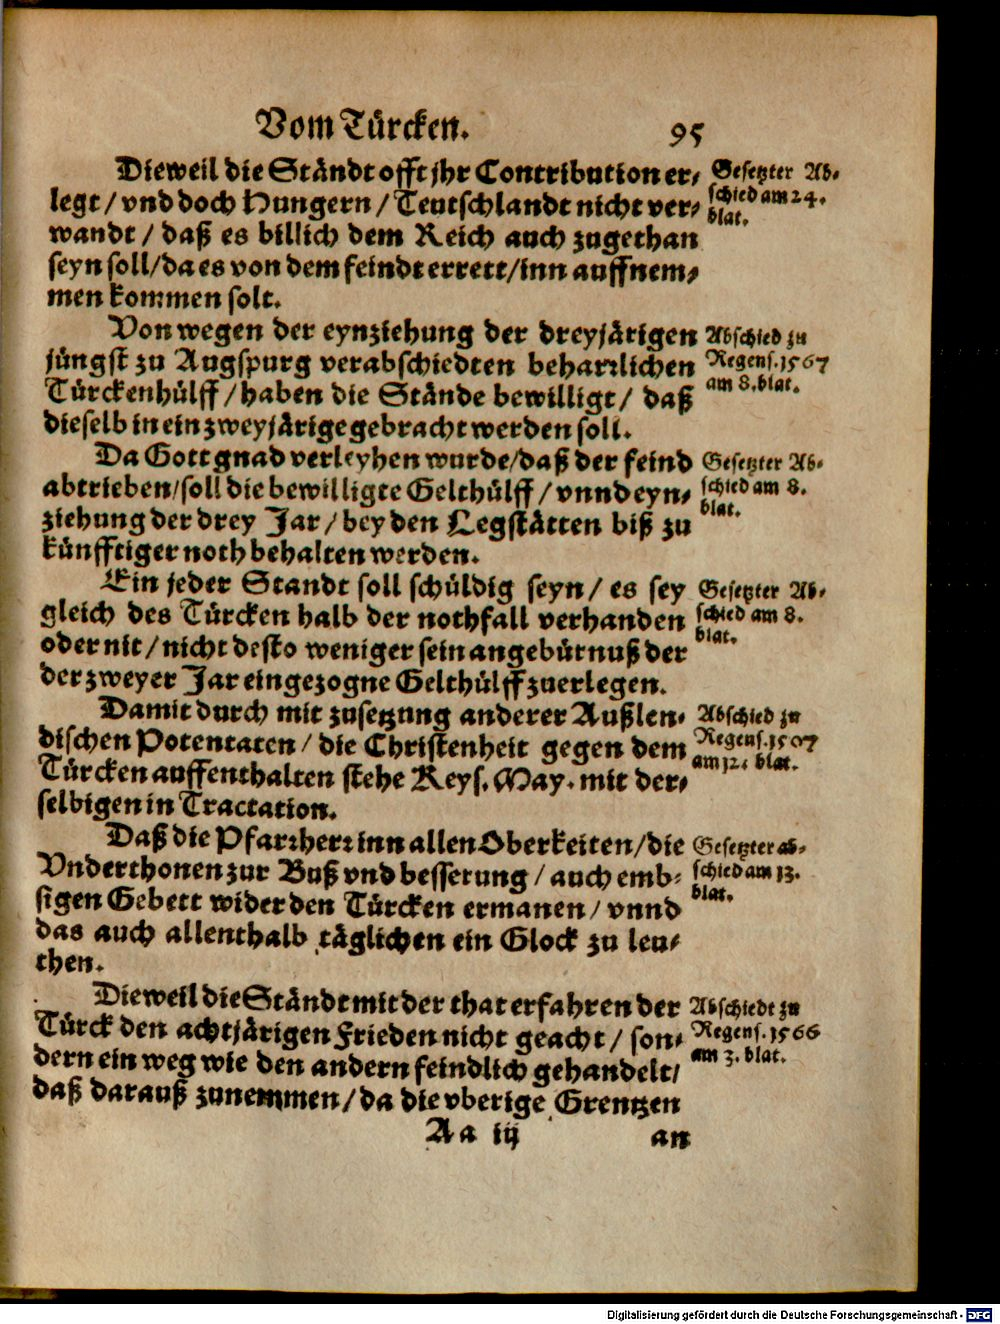 Vom Türcken. 95
Dieweil die Ständt offt jhr Contribution er-
legt / vnd doch Hungern / Teutschlandt nicht ver-
wandt / daß es billich dem Reich auch zugethan
seyn soll / da es von dem feindt errett / inn auffnem-
men kommen solt.
Gesetzter Ab-
schied am 24.
blat.
Von wegen der eynziehung der dreyjärigen
jüngst zu Augspurg verabschiedten beharrlichen
Türckenhülff / haben die Stände bewilligt / daß
dieselb in ein zweyjärige gebracht werden soll.
Abschied zu
Regens. 1567
am 8. blat.
Da Gott gnad verleyhen wurde / daß der feind
abtrieben / soll die bewilligte Gelthülff / vnnd eyn-
ziehung der drey Jar / bey den Legstätten biß zu
künfftiger noth behalten werden.
Gesetzter Ab-
schied am 8.
blat.
Ein jeder Standt soll schüldig seyn / es sey
gleich des Türcken halb der nothfall verhanden
oder nit / nicht desto weniger sein angebürnuß der
der zweyer Jar eingezogne Gelthülff zuerlegen.
Gesetzter Ab-
schied am 8.
blat.
Damit durch mit zusetzung anderer Außlen-
dischen Potentaten / die Christenheit gegen dem
Türcken auffenthalten stehe Keys. May. mit der-
selbigen in Tractation.
Abschied zu
Regens. 1507
am 12. blat.
Daß die Pfarrherr inn allen Oberkeiten / die
Vnderthonen zur Buß vnd besserung / auch emb-
sigen Gebett wider den Türcken ermanen / vnnd
das auch allenthalb täglichen ein Glock zu leu-
then.
Gesetzter ab-
schied am 13.
blat.
Dieweil die Ständt mit der that erfahren der
Türck den achtjärigen Frieden nicht geacht / son-
dern ein weg wie den andern feindlich gehandelt /
daß darauß zunemmen / da die vberige Grentzen
Abschiedt zu
Regens. 1566
am 3. blat.
Aa iij an
Digitalisierung gefördert durch die Deutsche Forschungsgemeinschaft - DFG